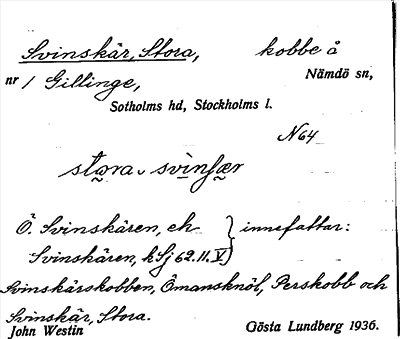 Svinskär, Stora, kobbe å
nr 1 Gillinge, Nämdö sn,
Sotholms hd, Stockholms l.
N64
stora svinſær
Ö. Svinskären, ek } innefattar:
Svinskären, kSj 62.11.V)
Svinskärskobben, Ömansknöl, Perskobb och
Svinskär, Stora.
John Westin Gösta Lundberg 1936.